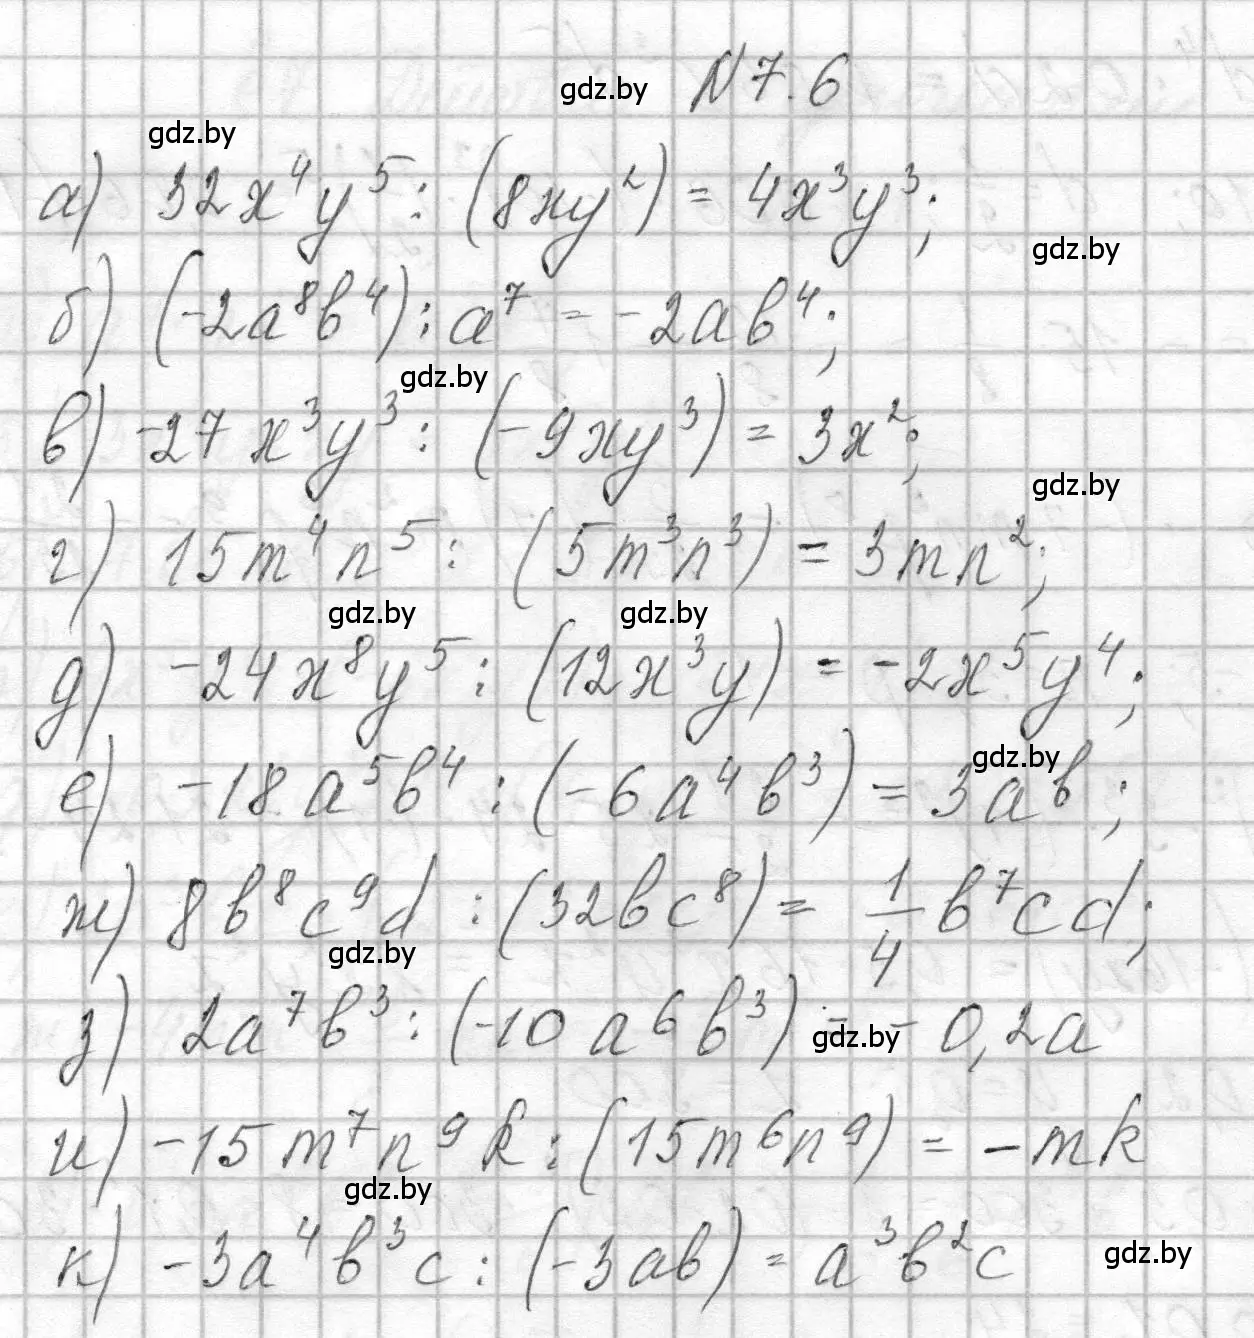 gdz.by N 7.6
gdz.by
а) 32x⁴y⁵ : (8xy²) = 4x³y³;
gdz.by
б) (-2a⁸b⁴) : a⁷ = -2ab⁴;
gdz.by
в) -27x³y³ : (-9xy³) = 3x²;
gdz.by
г) 15m⁴n⁵ : (5m³n³) = 3mn²;
gdz.by gdz.by
д) -24x⁸y⁵ : (12x³y) = -2x⁵y⁴;
gdz.by
е) -18a⁵b⁴ : (-6a⁴b³) = 3ab;
ж) 8b⁸c⁹d : (32bc⁸) = 1/4 b⁷cd;
gdz.by
з) 2a⁷b³ : (-10a⁶b³) = -0,2a
gdz.by
и) -15m⁷n⁹k : (15m⁶n⁹) = -mk
gdz.by
к) -3a⁴b³c : (-3ab) = a³b²c
gdz.by